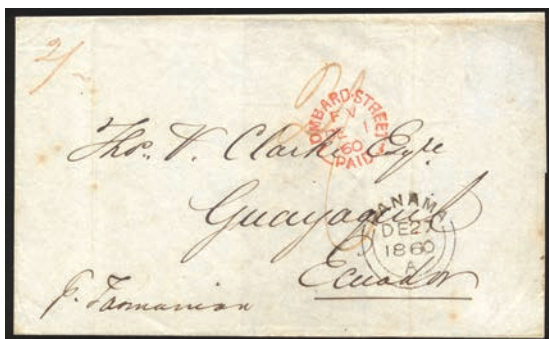 2/-
LOMBARD·STREET
FV
1
60
PAID
Thos. V. Clarke Esqre
Guayaquil
PANAMA
DE 27
1860
A
Ecuador
p. Tasmanian